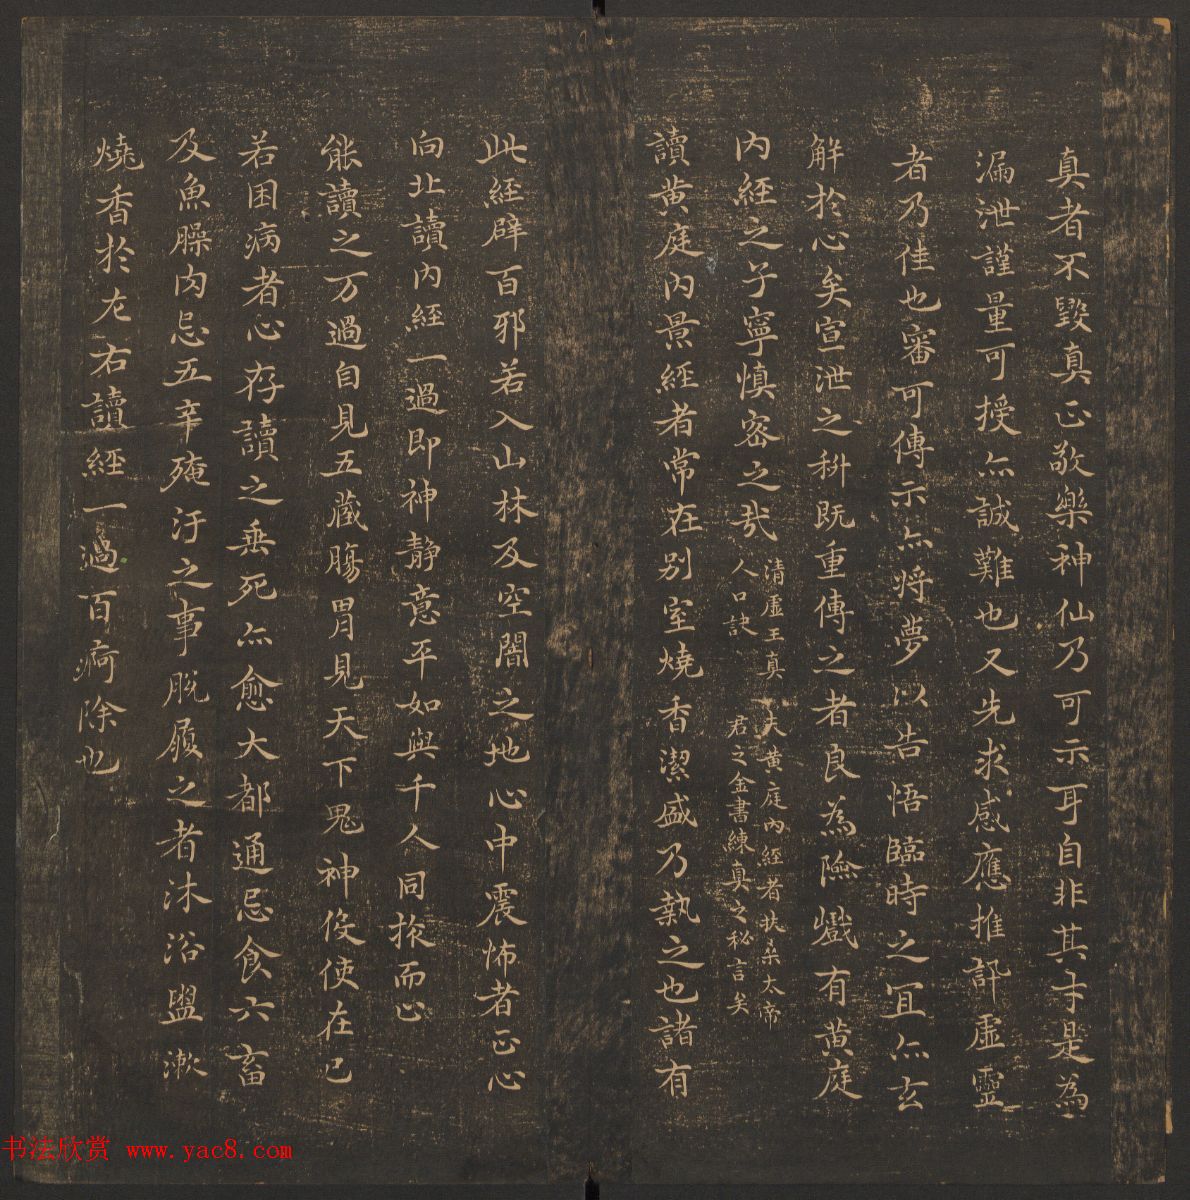 真者不毀真正敬樂神仙乃可示耳自非其才是為
漏泄謹量可授亦誠難也又先求感應推訊虛靈
者乃佳也審可傳示亦將夢以告悟臨時之冝亦玄
解於心矣宣泄之科既重傳之者良為險巇有黃庭
內經之子寧慎密之哉
清虛王真
人口訣
夫黃庭內經者扶桑太帝
君之金書練真之秘言矣
讀黃庭內景經者常在別室燒香潔盛乃執之也諸有
此經辟百邪若入山林及空闇之地心中震怖者正心
向北讀內經一過即神靜意平如與千人同掖而心
能讀之万過自見五藏膓胃見天下鬼神伇使在己
若困病者心存讀之垂死亦愈大都通忌食六畜
及魚臊肉忌五辛殗汙之事脫履之者沐浴盥漱
燒香於左右讀經一過百痾除也
书法欣赏 www.yac8.com